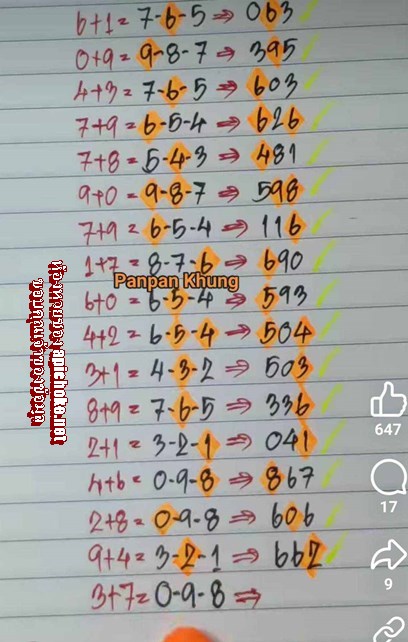 6+1 = 7-6-5 ⇒ 063
0+9 = 9-8-7 ⇒ 395
4+3 = 7-6-5 ⇒ 603
7+9 = 6-5-4 ⇒ 626
7+8 = 5-4-3 ⇒ 481
9+0 = 9-8-7 ⇒ 598
7+9 = 6-5-4 ⇒ 116
1+7 = 8-7-6 ⇒ 690
Panpan Khung
6+0 = 6-5-4 ⇒ 593
4+2 = 6-5-4 → 504
3+1 = 4-3-2 ⇒ 503
8+9 = 7-6-5 ⇒ 336
2+1 = 3-2-1 ⇒ 041
4+6 = 0-9-8 ⇒ 867
2+8 = 0-9-8 ⇒ 606
9+4 = 3-2-1 ⇒ 662
3+7 = 0-9-8 ⇒
apichoke.net
647
17
9